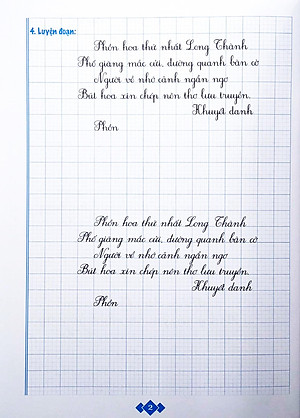 4. Luyện đoạn:
Phồn hoa thứ nhất Long Thành
Phố giăng mắc cửi, đường quanh bàn cờ
Người về nhớ cảnh ngẩn ngơ
Bút hoa xin chép nên thơ lưu truyền.
Khuyết danh
Phồn
Phồn hoa thứ nhất Long Thành
Phố giăng mắc cửi, đường quanh bàn cờ
Người về nhớ cảnh ngẩn ngơ
Bút hoa xin chép nên thơ lưu truyền.
Khuyết danh
Phồn
2